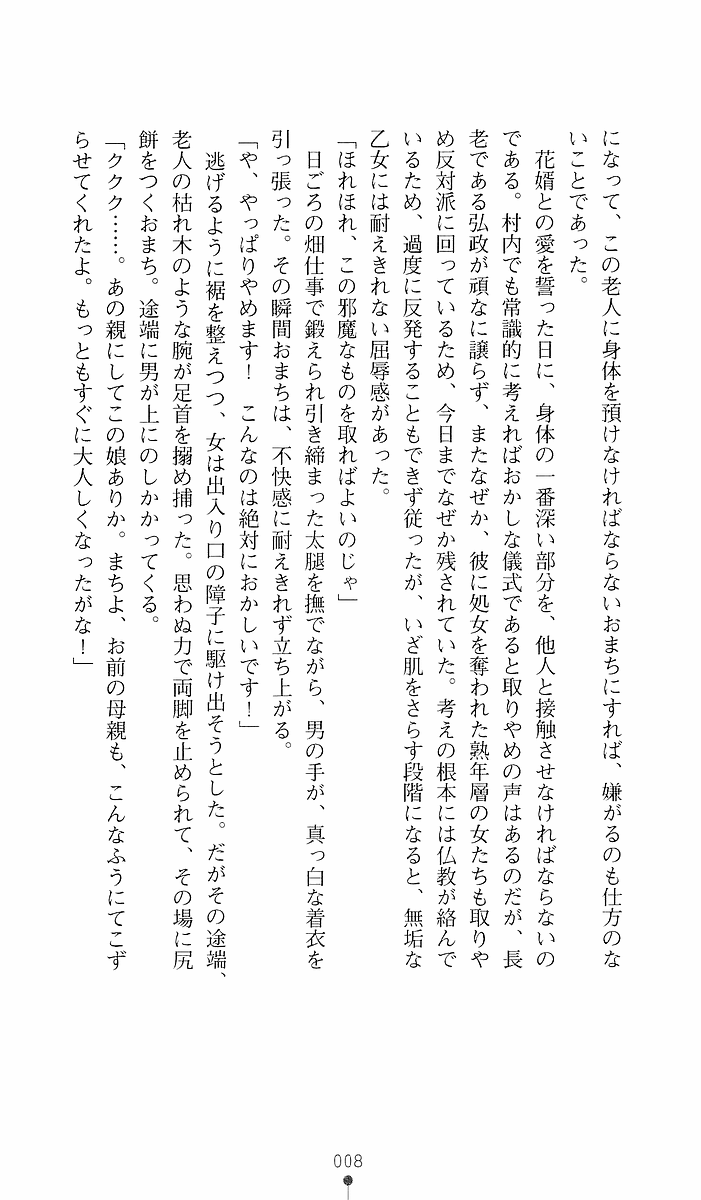 になって、この老人に身体を預けなければならないおまちにすれば、嫌がるのも仕方のな
いことであった。
花婿との愛を誓った日に、身体の一番深い部分を、他人と接触させなければならないの
である。村内でも常識的に考えればおかしな儀式であると取りやめの声はあるのだが、長
老である弘政が頑なに譲らず、またなぜか、彼に処女を奪われた熟年層の女たちも取りや
め反対派に回っているため、今日までなぜか残されていた。考えの根本には仏教が絡んで
いるため、過度に反発することもできず従ったが、いざ肌をさらす段階になると、無垢な
乙女には耐えきれない屈辱感があった。
「ほれほれ、この邪魔なものを取ればよいのじゃ」
日ごろの畑仕事で鍛えられ引き締まった太腿を撫でながら、男の手が、真っ白な着衣を
引っ張った。その瞬間おまちは、不快感に耐えきれず立ち上がる。
「や、やっぱりやめます！　こんなのは絶対におかしいです！」
逃げるように裾を整えつつ、女は出入り口の障子に駆け出そうとした。だがその途端、
老人の枯れ木のような腕が足首を搦め捕った。思わぬ力で両脚を止められて、その場に尻
餅をつくおまち。途端に男が上にのしかかってくる。
「ククク……。あの親にしてこの娘ありか。まちよ、お前の母親も、こんなふうにてこず
らせてくれたよ。もっともすぐに大人しくなったがな！」
008